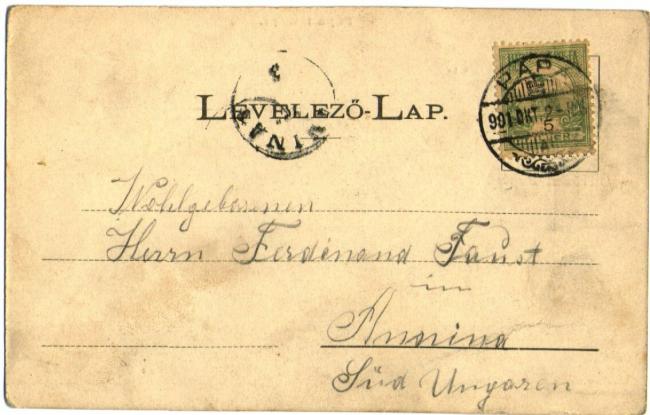 LEVELEZŐ-LAP.
PÁP
901 OKT. 2
5
Wohlgeborenen
Herrn Ferdinand Faust
in
Annina
Süd Ungaren